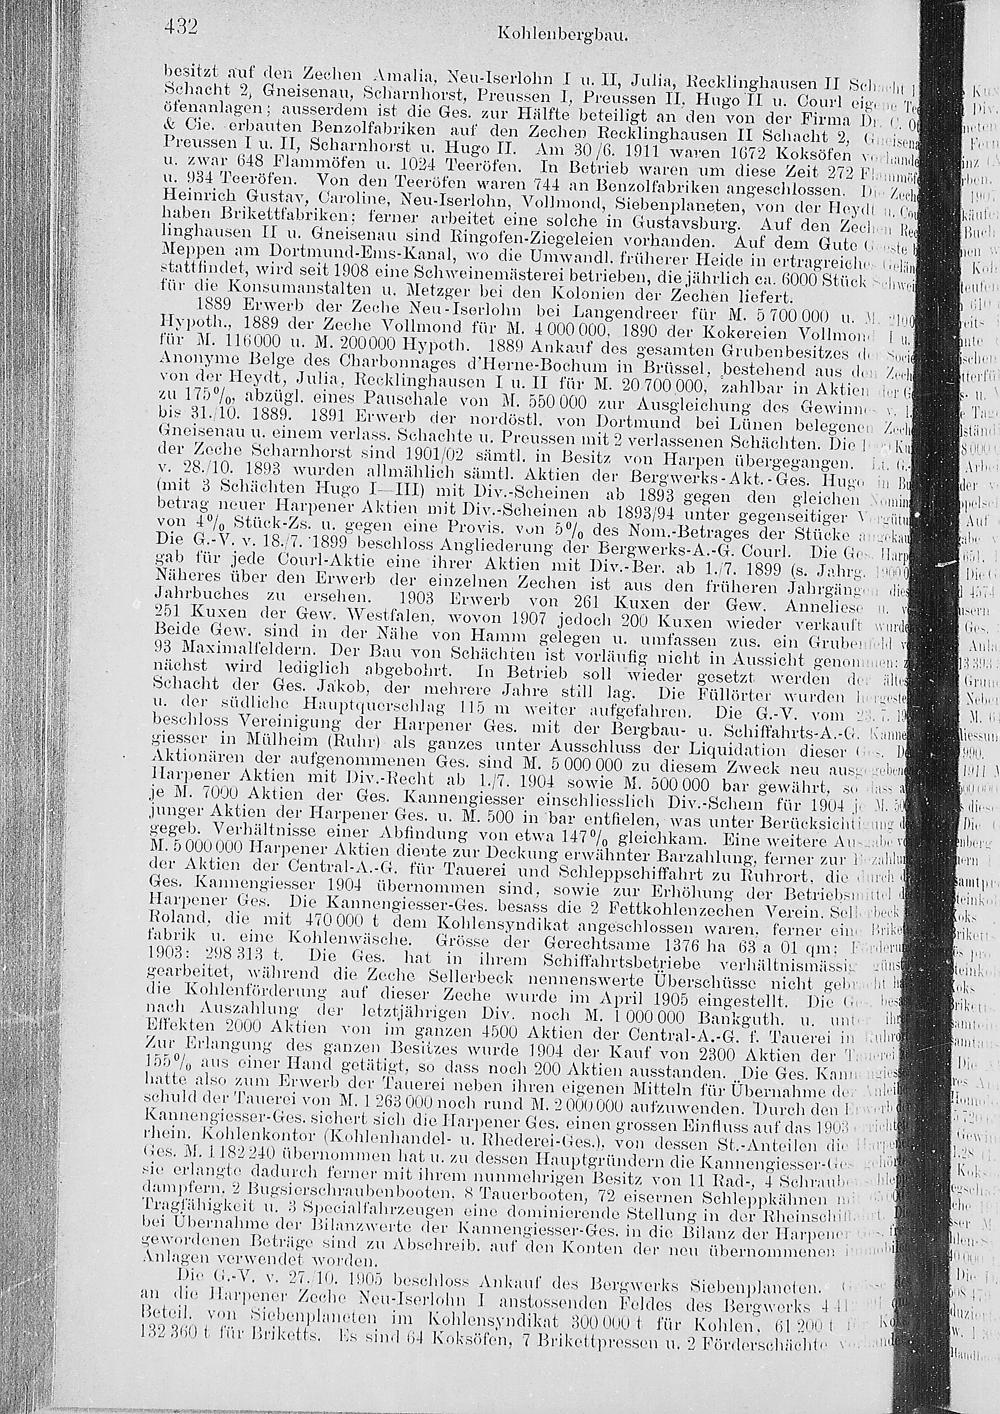 432
Kohlenbergbau.
besitzt auf den Zechen Amalia, Neu-Iserlohn I u. II, Julia, Recklinghausen II
Schacht 2, Gneisenau, Scharnhorst, Preussen I, Preussen II, Hugo II u. Courl
ofenanlagen; ausserdem ist die Ges. zur Hälfte beteiligt an den von der Firma Dr. C.
& Cie. erbauten Benzolfabriken auf den Zechen Recklinghausen II Schacht 2,
Preussen I u. II, Scharnhorst u. Hugo II. Am 30/6. 1911 waren 1672 Koksöfen
u. zwar 648 Flammöfen u. 1024 Teeröfen. In Betrieb waren um diese Zeit 272
u. 934 Teeröfen. Von den Teeröfen waren 744 an Benzolfabriken angeschlossen.
Heinrich Gustav, Caroline, Neu-Iserlohn, Vollmond, Siebenplaneten, von der Heydt u.
haben Brikettfabriken; ferner arbeitet eine solche in Gustavsburg. Auf den Zechen
linghausen II u. Gneisenau sind Ringofen-Ziegeleien vorhanden. Auf dem Gute
Meppen am Dortmund-Ems-Kanal, wo die Umwandl. früherer Heide in ertragreiches
stattfindet, wird seit 1908 eine Schweinemästerei betrieben, die jährlich ca. 6000 Stück
für die Konsumanstalten u. Metzger bei den Kolonien der Zechen liefert.
1889 Erwerb der Zeche Neu-Iserlohn bei Langendreer für M. 5 700 000 u. M.
Hypoth., 1889 der Zeche Vollmond für M. 4 000 000, 1890 der Kokereien Vollmond I u.
für M. 116 000 u. M. 200 000 Hypoth. 1889 Ankauf des gesamten Grubenbesitzes
Anonyme Belge des Charbonnages d'Herne-Bochum in Brüssel, bestehend aus den
von der Heydt, Julia, Recklinghausen I u. II für M. 20 700 000, zahlbar in Aktien
zu 175%, abzügl. eines Pauschale von M. 550 000 zur Ausgleichung des Gewinnes
bis 31./10. 1889. 1891 Erwerb der nordöstl. von Dortmund bei Lünen belegenen
Gneisenau u. einem verlass. Schachte u. Preussen mit 2 verlassenen Schächten. Die
der Zeche Scharnhorst sind 1901/02 sämtl. in Besitz von Harpen übergegangen. Lt.
v. 28./10. 1893 wurden allmählich sämtl. Aktien der Bergwerks-Akt.-Ges. Hugo in
(mit 3 Schächten Hugo I—III) mit Div.-Scheinen ab 1893 gegen den gleichen
betrag neuer Harpener Aktien mit Div.-Scheinen ab 1893/94 unter gegenseitiger
von 4% Stück-Zs. u. gegen eine Provis. von 5% des Nom.-Betrages der Stücke
Die G.-V. v. 18./7. 1899 beschloss Angliederung der Bergwerks-A.-G. Courl. Die Ges.
gab für jede Courl-Aktie eine ihrer Aktien mit Div.-Ber. ab 1./7. 1899 (s. Jahrg.
Näheres über den Erwerb der einzelnen Zechen ist aus den früheren Jahrgängen
Jahrbuches zu ersehen. 1903 Erwerb von 261 Kuxen der Gew. Anneliese u.
251 Kuxen der Gew. Westfalen, wovon 1907 jedoch 200 Kuxen wieder verkauft
Beide Gew. sind in der Nähe von Hamm gelegen u. umfassen zus. ein Grubenfeld
93 Maximalfeldern. Der Bau von Schächten ist vorläufig nicht in Aussicht genommen;
nächst wird lediglich abgebohrt. In Betrieb soll wieder gesetzt werden der
Schacht der Ges. Jakob, der mehrere Jahre still lag. Die Füllörter wurden
u. der südliche Hauptquerschlag 115 m weiter aufgefahren. Die G.-V. vom
beschloss Vereinigung der Harpener Ges. mit der Bergbau- u. Schiffahrts-A.-G.
giesser in Mülheim (Ruhr) als ganzes unter Ausschluss der Liquidation dieser
Aktionären der aufgenommenen Ges. sind M. 5 000 000 zu diesem Zweck neu
Harpener Aktien mit Div.-Recht ab 1./7. 1904 sowie M. 500 000 bar gewährt,
je M. 7000 Aktien der Ges. Kannengiesser einschliesslich Div.-Schein für 1904
junger Aktien der Harpener Ges. u. M. 500 in bar entfielen, was unter
gegeb. Verhältnisse einer Abfindung von etwa 147% gleichkam. Eine weitere
M. 5 000 000 Harpener Aktien diente zur Deckung erwähnter Barzahlung, ferner zur
der Aktien der Central-A.-G. für Tauerei und Schleppschiffahrt zu Ruhrort, die
Ges. Kannengiesser 1904 übernommen sind, sowie zur Erhöhung der Betriebsmittel
Harpener Ges. Die Kannengiesser-Ges. besass die 2 Fettkohlenzechen Verein.
Roland, die mit 470 000 t dem Kohlensyndikat angeschlossen waren, ferner eine
fabrik u. eine Kohlenwäsche. Grösse der Gerechtsame 1376 ha 63 a 01 qm;
1903: 298 313 t. Die Ges. hat in ihrem Schiffahrtsbetriebe verhältnismässig
gearbeitet, während die Zeche Sellerbeck nennenswerte Überschüsse nicht
die Kohlenförderung auf dieser Zeche wurde im April 1905 eingestellt. Die
nach Auszahlung der letztjährigen Div. noch M. 1 000 000 Bankguth. u. unter
Effekten 2000 Aktien von im ganzen 4500 Aktien der Central-A.-G. f. Tauerei in
Zur Erlangung des ganzen Besitzes wurde 1904 der Kauf von 2300 Aktien der
155% aus einer Hand getätigt, so dass noch 200 Aktien ausstanden. Die Ges.
hatte also zum Erwerb der Tauerei neben ihren eigenen Mitteln für Übernahme der
schuld der Tauerei von M. 1 263 000 noch rund M. 2 000 000 aufzuwenden. Durch den
Kannengiesser-Ges. sichert sich die Harpener Ges. einen grossen Einfluss auf das 1903
rhein. Kohlenkontor (Kohlenhandel- u. Rhederei-Ges.), von dessen St.-Anteilen die
Ges. M. 1 182 240 übernommen hat u. zu dessen Hauptgründern die Kannengiesser-Ges.
sie erlangte dadurch ferner mit ihrem nunmehrigen Besitz von 11 Rad-, 4
dampfern, 2 Bugsierschraubenbooten, 8 Tauerbooten, 72 eisernen Schleppkähnen
Tragfähigkeit u. 3 Specialfahrzeugen eine dominierende Stellung in der
bei Übernahme der Bilanzwerte der Kannengiesser-Ges. in die Bilanz der Harpener
gewordenen Beträge sind zu Abschreib. auf den Konten der neu übernommenen
Anlagen verwendet worden.
Die G.-V. v. 27./10. 1905 beschloss Ankauf des Bergwerks Siebenplaneten.
an die Harpener Zeche Neu-Iserlohn I anstossenden Feldes des Bergwerks
Beteil. von Siebenplaneten im Kohlensyndikat 300 000 t für Kohlen, 61 200 t
132 360 t für Briketts. Es sind 64 Koksöfen, 7 Brikettpressen u. 2 Förderschächte